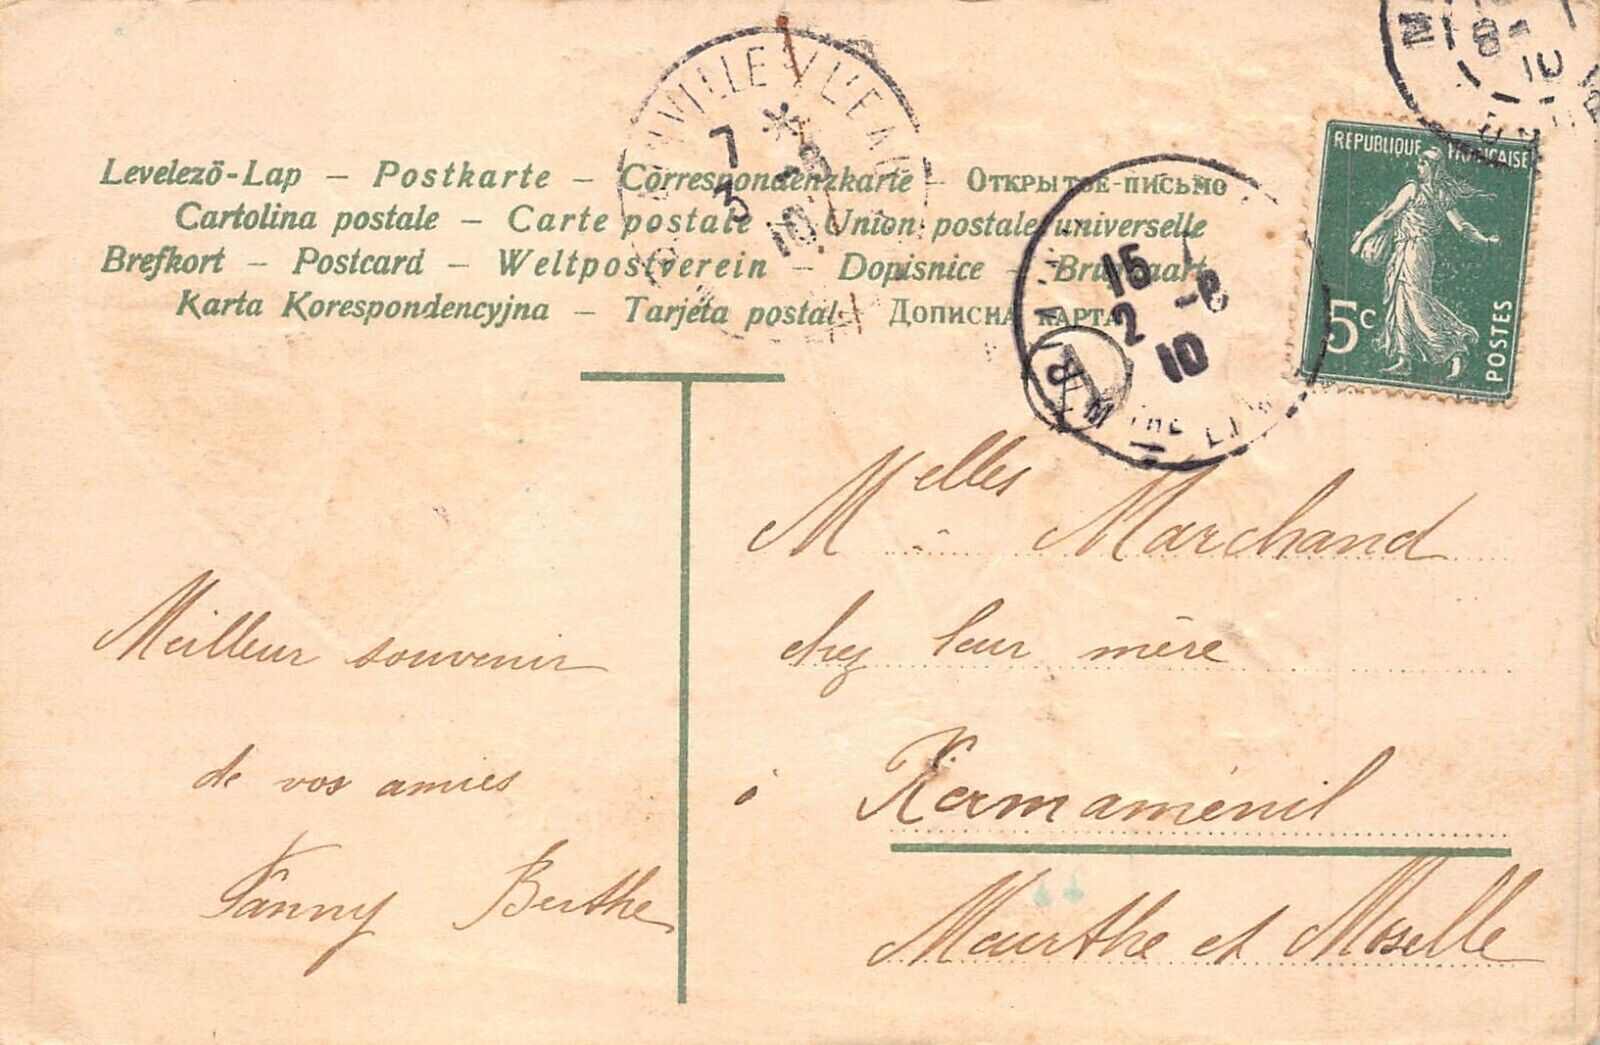 Levelező-Lap – Postkarte – Correspondenzkarte – Открытое письмо
Cartolina postale – Carte postale – Union postale universelle
Brefkort – Postcard – Weltpostverein – Dopisnice – Brugkaart
Karta Korespondencyjna – Tarjeta postal – Дописна карта
7 *
3 10
15
2 -8
10
8-
10
REPUBLIQUE FRANÇAISE
5c
POSTES
Melles Marchand
chez leur mère
à Xermaménil
Meurthe et Moselle
Meilleur souvenir
de vos amies
Fanny Berthe